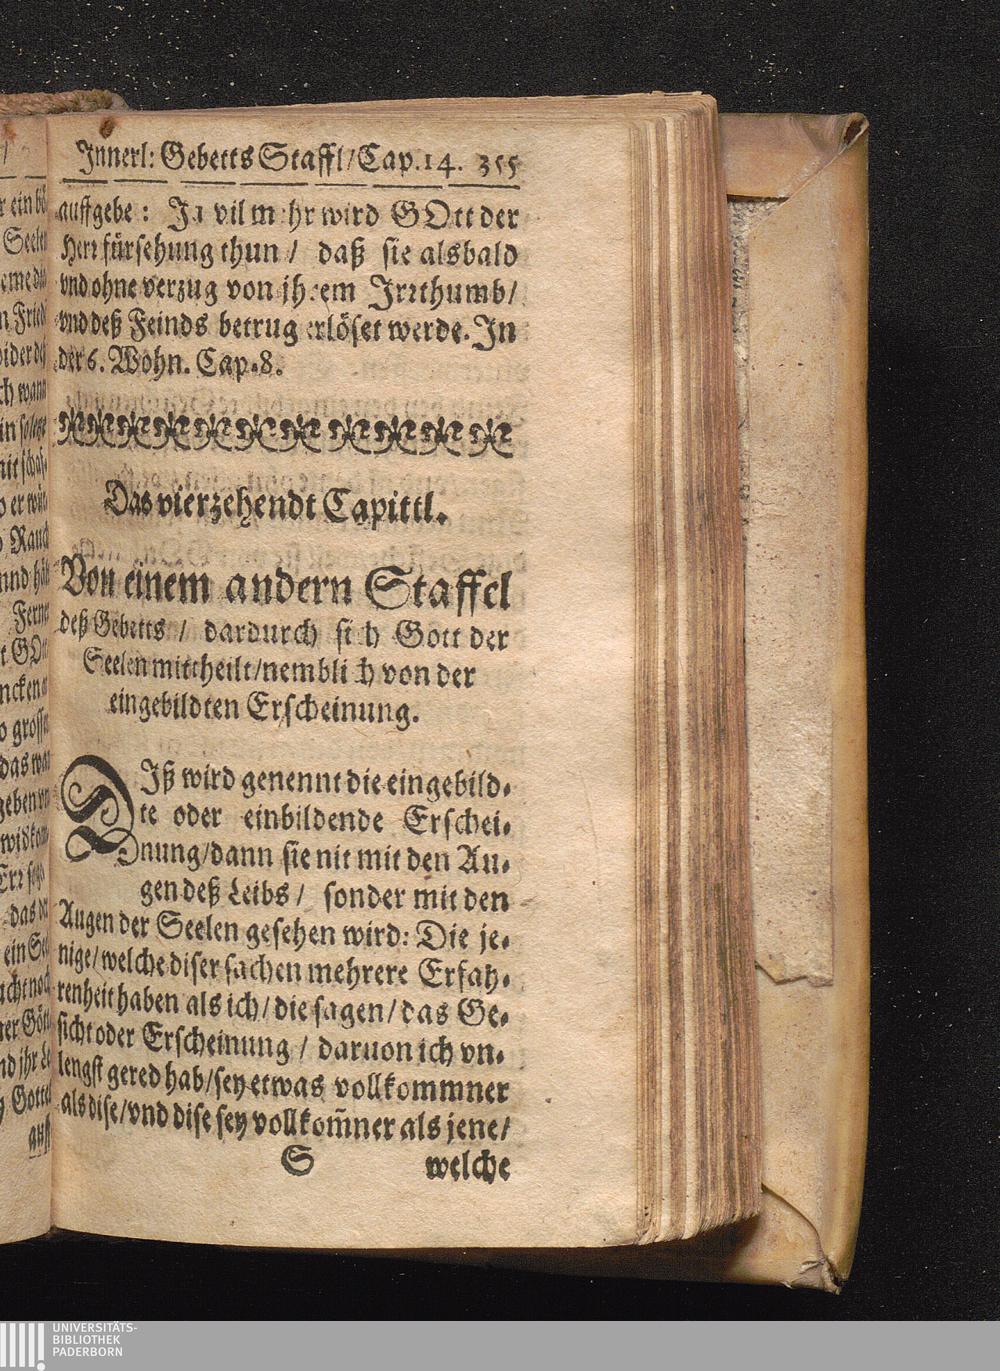 Innerl: Gebetts Staffl/Cap.14. 355
auffgebe: Ja vil mehr wird GOtt der
Herr fürsehung thun / daß sie alsbald
vnd ohne verzug von jhrem Irrthumb/
vnd deß Feinds betrug erlöset werde. In
der 6. Wohn. Cap. 8.
Das vierzehendt Capittl.
Von einem andern Staffel
deß Gebetts / dardurch sich Gott der
Seelen mittheilt/nemblich von der
eingebildten Erscheinung.
DIß wird genennt die eingebild-
te oder einbildende Erschei-
nung/dann sie nit mit den Au-
gen deß Leibs / sonder mit den
Augen der Seelen gesehen wird: Die je-
nige/welche diser sachen mehrere Erfah-
renheit haben als ich/die sagen/das Ge-
sicht oder Erscheinung / daruon ich vn-
lengst gered hab/sey etwas vollkommner
als dise/vnd dise sey vollkom̃ner als jene/
S welche
UNIVERSITÄTS-
BIBLIOTHEK
PADERBORN